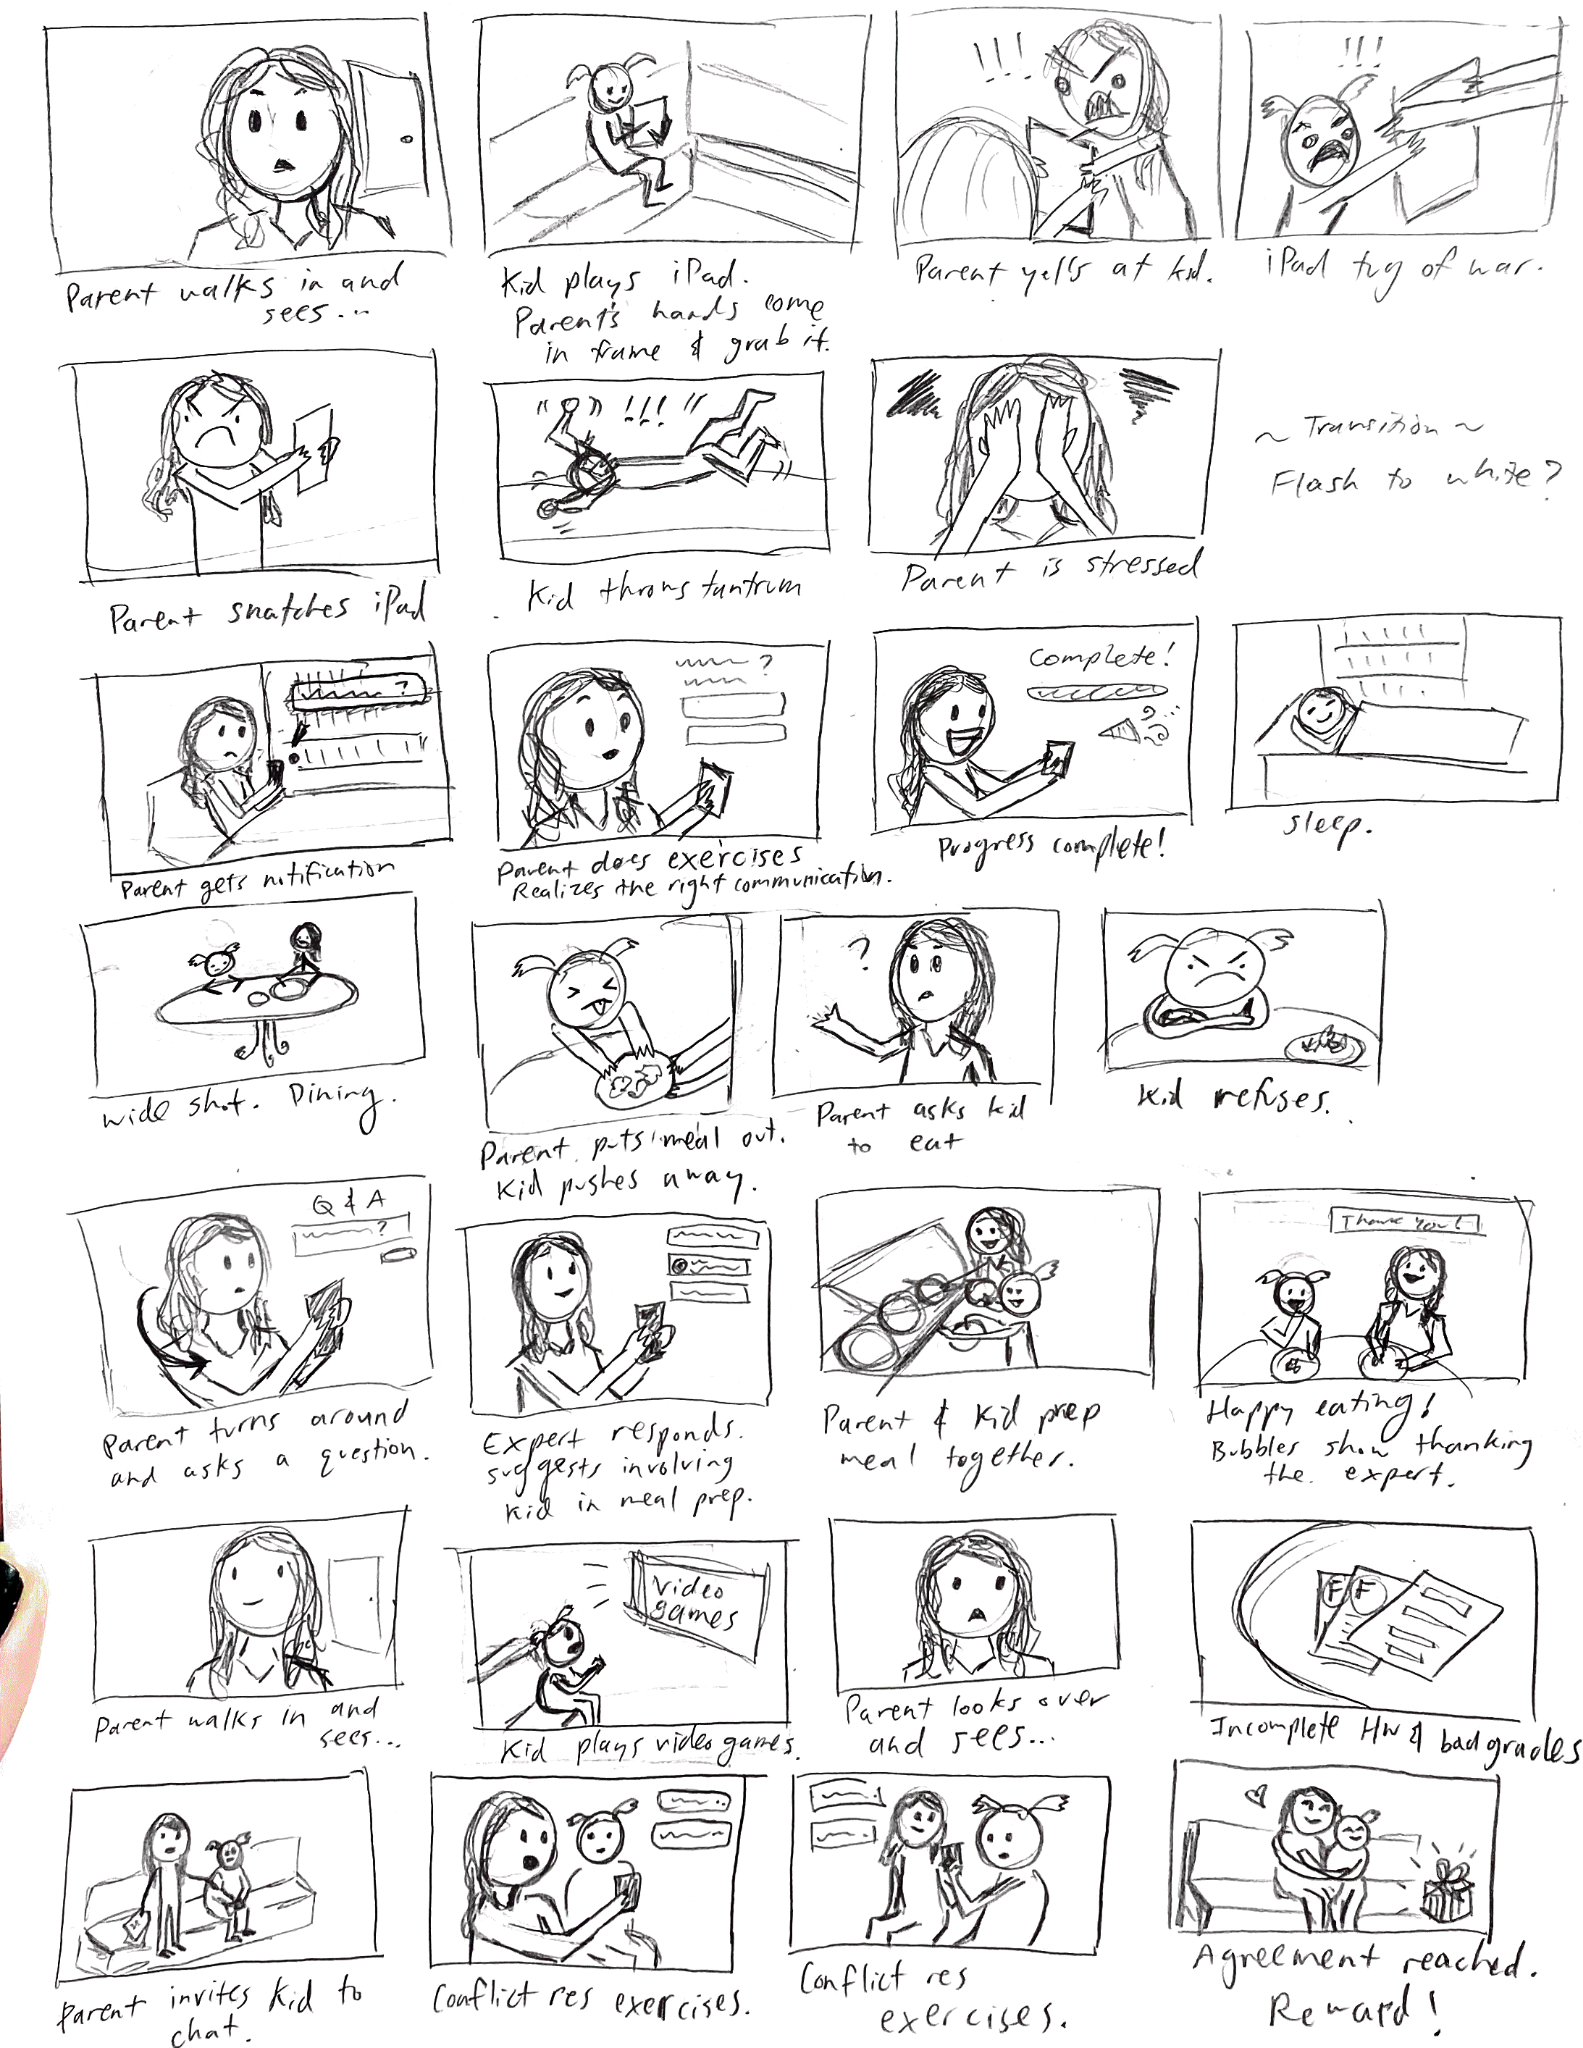 !!!
!!!
Parent walks in and
sees...
Kid plays iPad.
Parent's hands come
in frame & grab it.
Parent yells at kid.
iPad tug of war.
!!!
~ Transition ~
Flash to white?
Parent snatches iPad
Kid throws tantrum
Parent is stressed
?
?
Complete!
Parent gets notification
Parent does exercises
Realizes the right communication.
Progress complete!
sleep.
?
wide shot. Dining.
Parent puts meal out.
Kid pushes away.
Parent asks kid
to eat
Kid refuses.
Q & A
?
Thank you!
Parent turns around
and asks a question.
Expert responds.
suggests involving
kid in meal prep.
Parent & Kid prep
meal together.
Happy eating!
Bubbles show thanking
the expert.
video
games
F F
Parent walks in and
sees...
Kid plays video games.
Parent looks over
and sees...
Incomplete HW & bad grades
Parent invites kid to
chat.
Conflict res exercises.
Conflict res
exercises.
Agreement reached.
Reward!